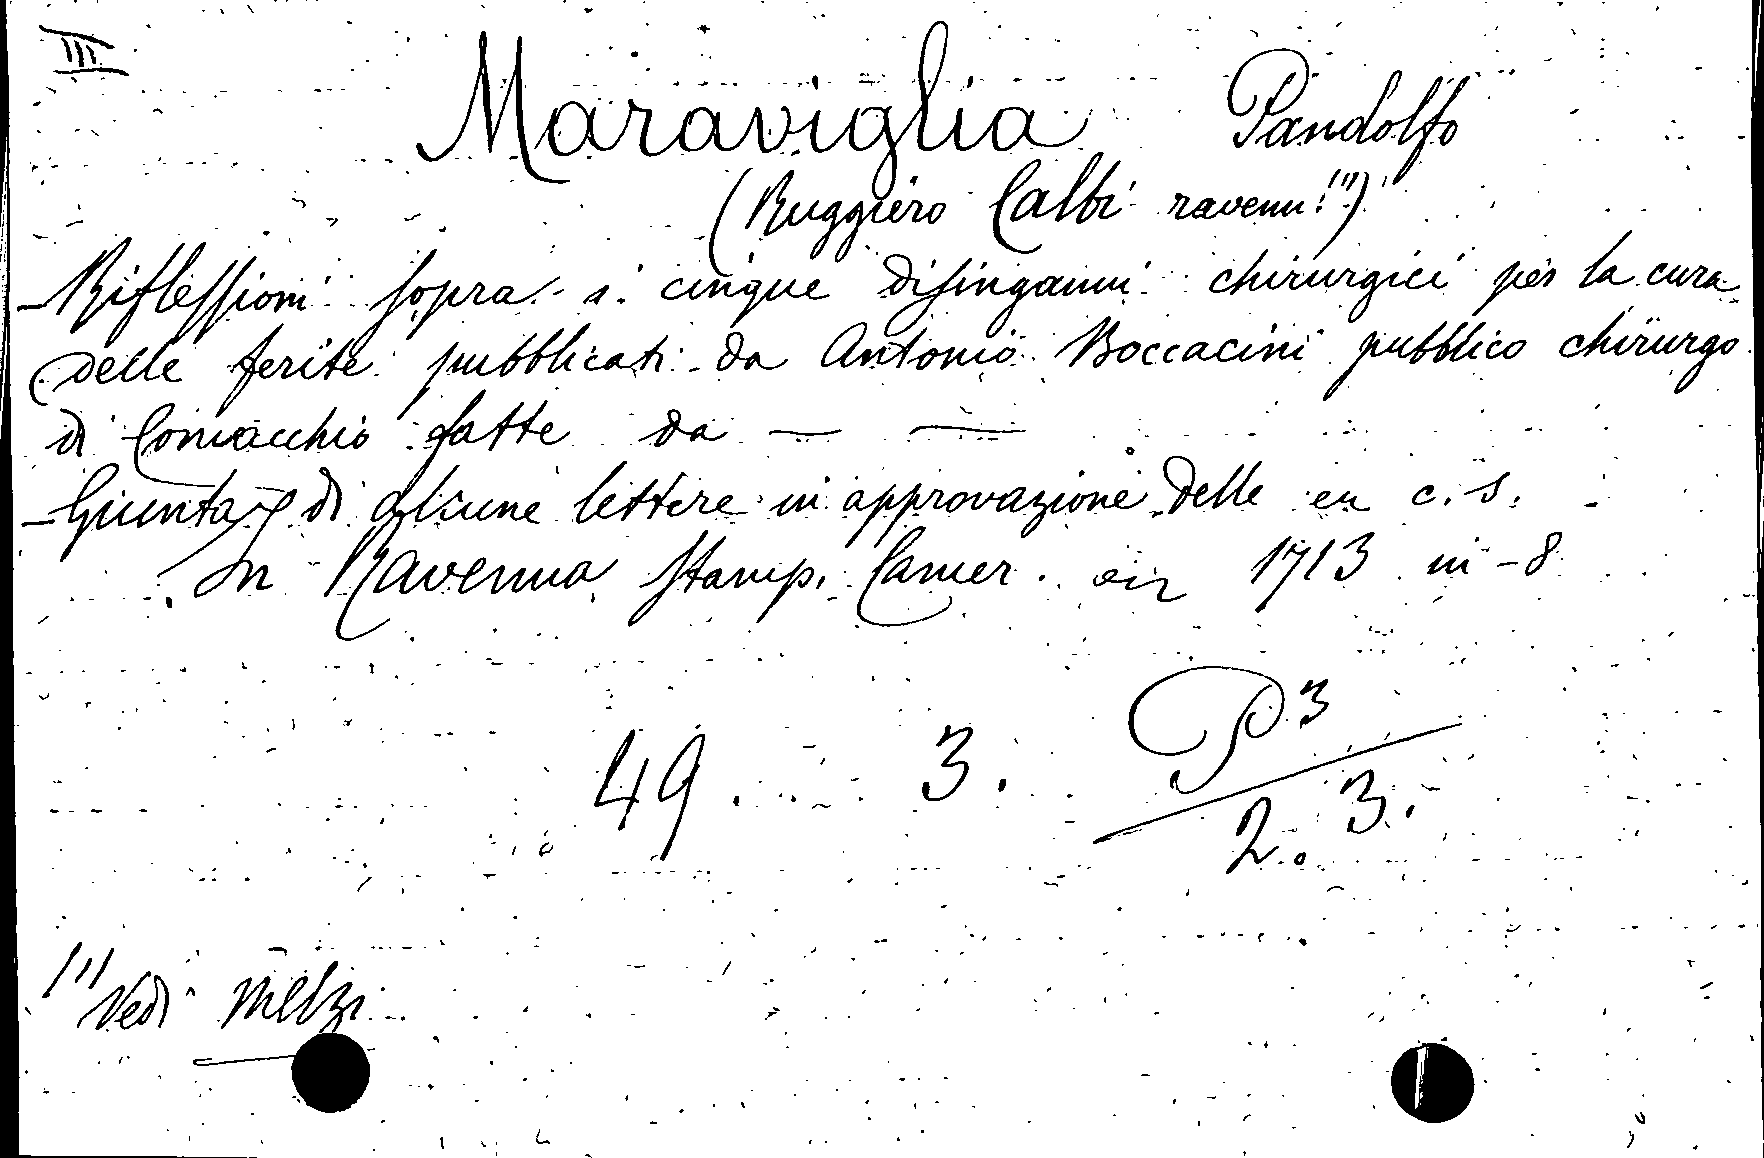 III
Maraviglia Pandolfo
(Ruggiero Calbi ravenn. (1))
- Riflessioni sopra i cinque disinganni chirurgici per la cura
delle ferite pubblicati da Antonio Boccacini pubblico chirurgo
di Comacchio fatte da — —
- Giunta di alcune lettere in approvazione delle c. s.
In Ravenna Stamp. Camer. 1713 in-8
49. 3. P3
2. 3.
(1) Vedi Melzi